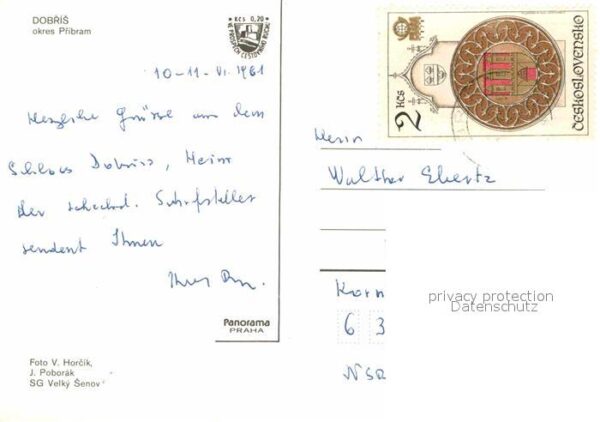 DOBŘÍŠ
okres Příbram
KČS 0,20
VE PROSPĚCH CESTOVNÍHO RUCHU
10-11-VI. 1981
Herzliche Grüsse aus dem
Schloss Dobriss, Heim
der tschechosl. Schriftsteller
sendent Ihnen
Ihre
Panorama
PRAHA
Foto V. Horčík,
J. Poborák
SG Velký Šenov
2 Kčs
ČESKOSLOVENSKO
Herrn
Walther Ebertz
Korn
6 3
NSR
privacy protection
Datenschutz